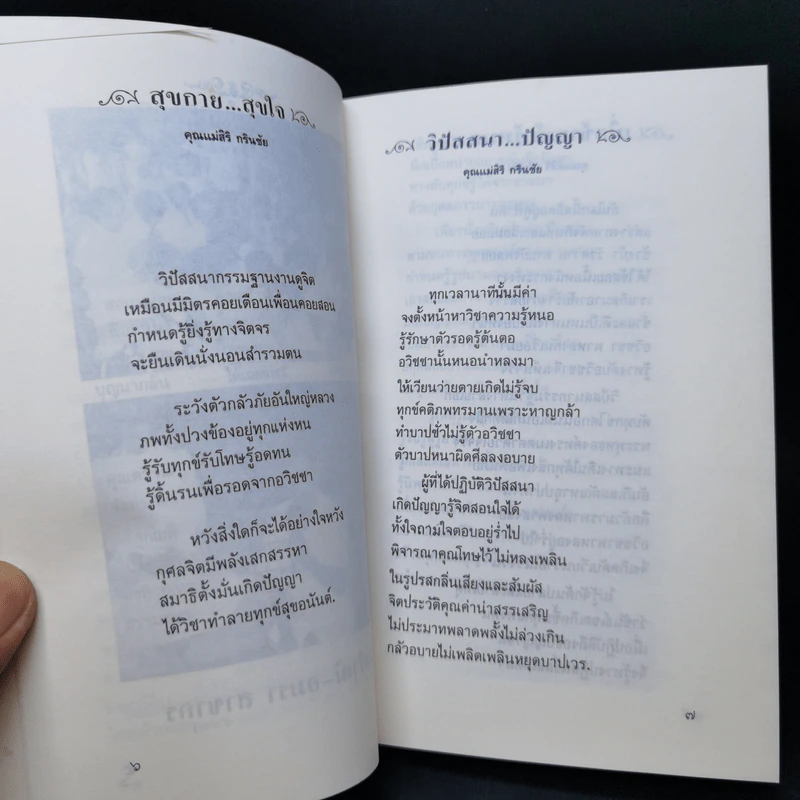 สุขกาย...สุขใจ
คุณแม่สิริ กรินชัย
วิปัสสนากรรมฐานงานดูจิต
เหมือนมีมิตรคอยเตือนเพื่อนคอยสอน
กำหนดรู้ยิ่งรู้ทางจิตจร
จะยืนเดินนั่งนอนสำรวมตน
ระวังตัวกลัวภัยอันใหญ่หลวง
ภพทั้งปวงข้องอยู่ทุกแห่งหน
รู้รับทุกข์รับโทษรู้อดทน
รู้ดิ้นรนเพื่อรอดจากอวิชชา
หวังสิ่งใดก็จะได้อย่างใจหวัง
กุศลจิตมีพลังเสกสรรหา
สมาธิตั้งมั่นเกิดปัญญา
ได้วิชาทำลายทุกข์สุขอนันต์.
๖
วิปัสสนา...ปัญญา
คุณแม่สิริ กรินชัย
ทุกเวลานาทีนั้นมีค่า
จงตั้งหน้าหาวิชาความรู้หนอ
รู้รักษาตัวรอดรู้ต้นตอ
อวิชชานั้นหนอนำหลงมา
ให้เวียนว่ายตายเกิดไม่รู้จบ
ทุกข์คติภพทรมานเพราะหาญกล้า
ทำบาปชั่วไม่รู้ตัวอวิชชา
ตัวบาปหนาผิดศีลลงอบาย
ผู้ที่ได้ปฏิบัติวิปัสสนา
เกิดปัญญารู้จิตสอนใจได้
ทั้งใจถามใจตอบอยู่ร่ำไป
พิจารณาคุณโทษไว้ ไม่หลงเพลิน
ในรูปรสกลิ่นเสียงและสัมผัส
จิตประวัติคุณค่าน่าสรรเสริญ
ไม่ประมาทพลาดพลั้งไม่ล่วงเกิน
กลัวอบายไม่เพลิดเพลินหยุดบาปเวร.
๗